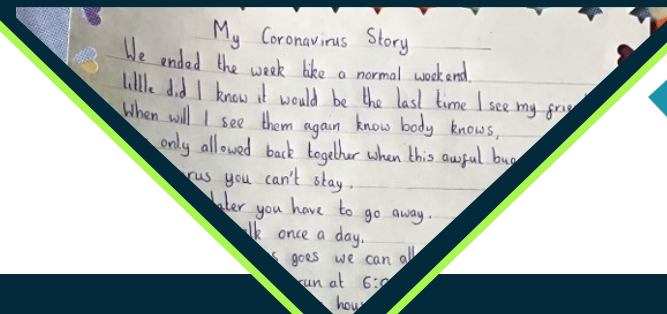 My Coronavirus Story
We ended the week like a normal weekend.
little did I know it would be the last time I see my
When will I see them again know body knows,
only allowed back together when this awful
you can't stay.
you have to go away.
once a day.
goes we can
at